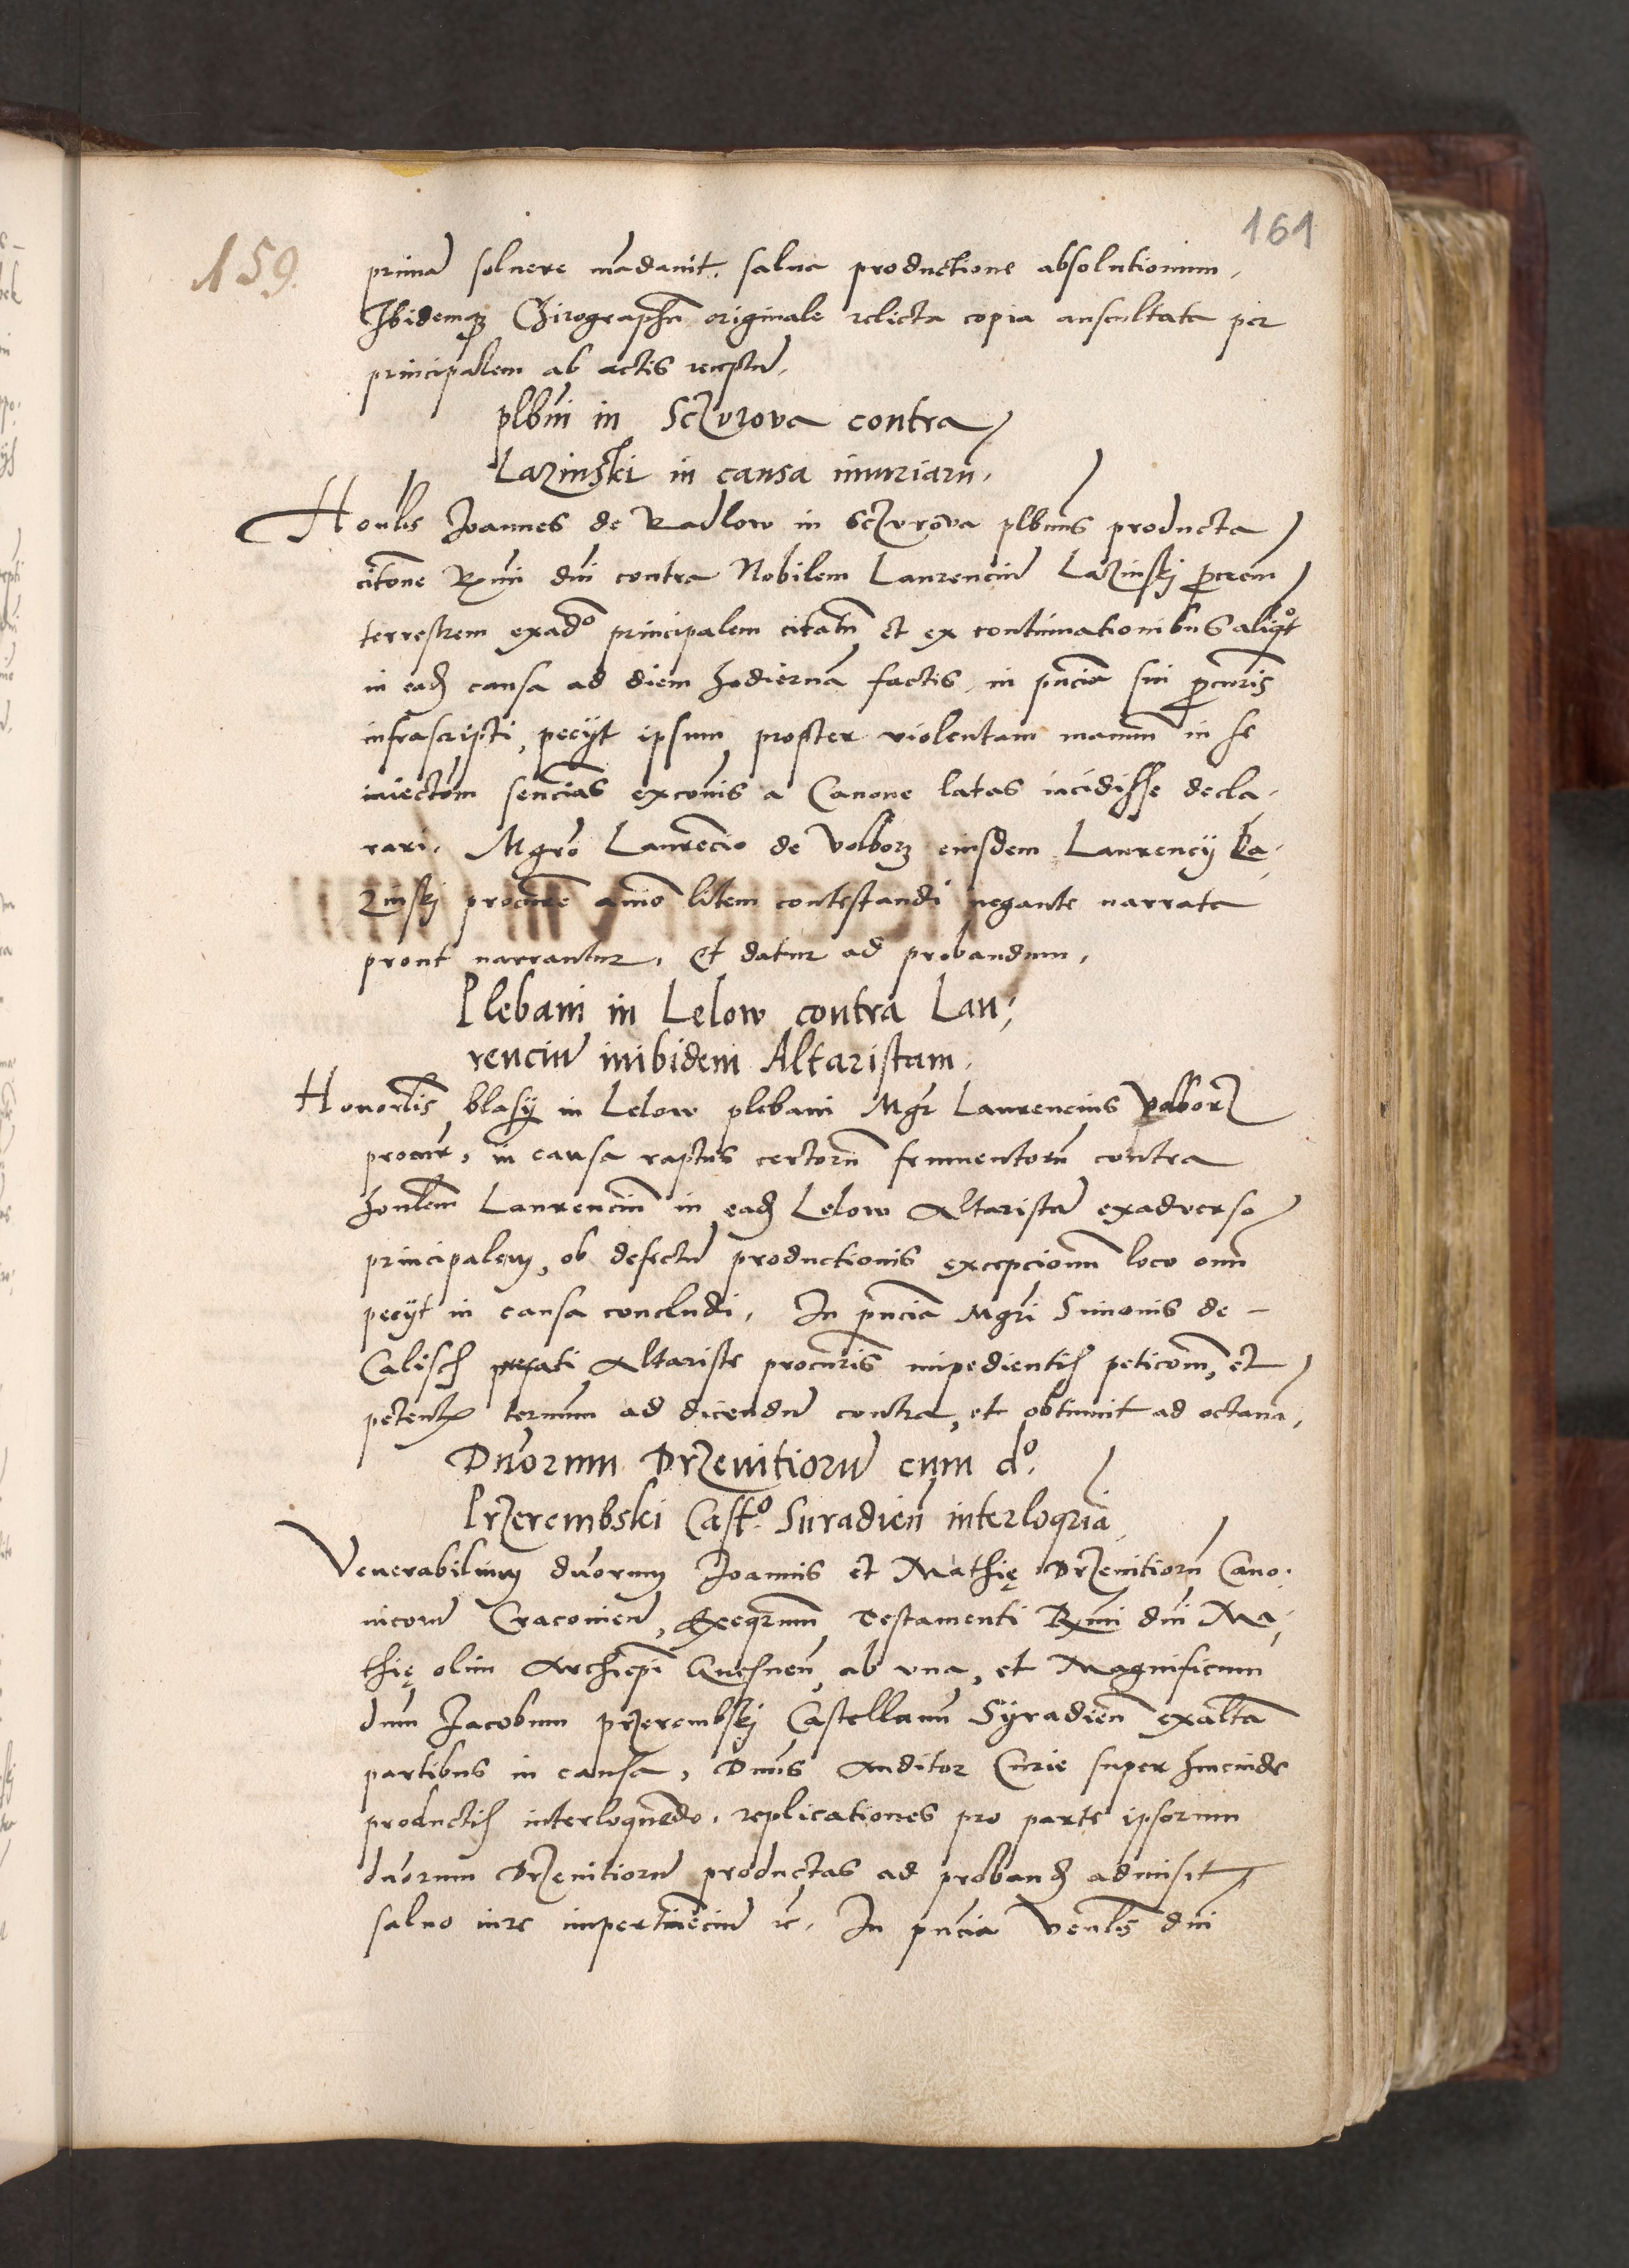 161
159.
primā soluere mādauit, salua productione absolutionum.
Ibidemqȝ Chirographū originale relicta copia auscultata per
principalem ab actis receptū.
plbni in Sczurova contra
Lazinski in causa iniuriarū.
Honbls Joannes de Radlow in Sczurova plbnus producta
citōne Rmi dni contra Nobilem Laurenciū Lazinskj procrem
terrestrem exadᵒ principalem citatū et ex continuationibus aliqᵒt
in eadȝ causa ad diem hodiernā factis, in pncia sui procuris
infrascripti, pecijt ipsum propter violentam manuū in se
iniectōm sencias excōmis a Canone latas incidisse decla-
rari. Mgrō Laurēcio de Volborz eiusdem Laurencij La-
zinskj procure animo litem contestandi negante narrata
prout narrantur, Et datur ad probandum,
Plebani in Lelow contra Lau-
renciū inibidem Altaristam.
Honorlis blasij in Lelow plebani Mgr Laurencius Volborz
procur, in causa raptus certorū frumentorū contra
honblem Laurenciū in eadȝ Lelow Altaristā exadverso
principalem, ob defectū productionis excepcionū loco oim
pecijt in causa concludi, In pncia Mgri Simonis de -
Calisch prefati Altariste procuris impedientis peticōm, et
petentis termum ad dicendū contra, et obtinuit ad octauā.
Dnorum Drzeuitiorū cum dᵒ.
Przerembski Castᵒ. Siradien interloqria
Venerabilium dnorum Joannis et Mathię Drzeuitiorū Cano-
nicorū Cracouien, Exeqrum Testamenti Rmi dni Ma-
thię olim Archiepi Gnesnen, ab vna, et Magnificum
dnum Jacobum przerembskj Castellanū Syradien exaltā
partibus in causa, Dnus Auditor Curie super hincinde
productis interloquendo, replicationes pro parte ipsorum
dnorum Drzeuitiorū productas ad probandȝ admisit
saluo iure impertinēciū rc. In pncia Venblis dni